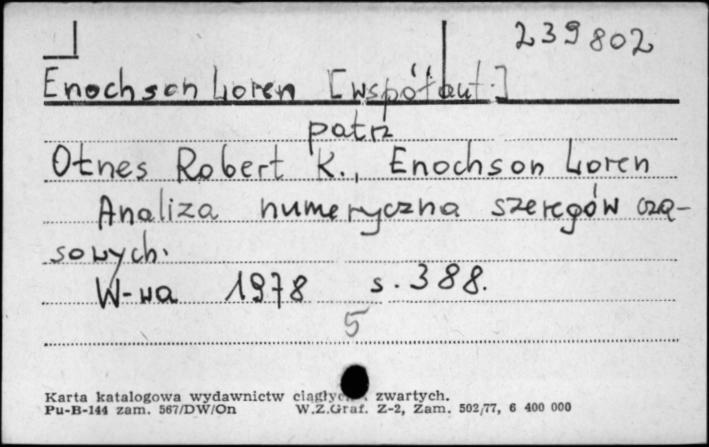 239802
Enochson Loren [współaut.]
patrz
Otnes Robert K., Enochson Loren
Analiza numeryczna szeregów czą-
sowych.
W-wa 1978 s. 388.
5
Karta katalogowa wydawnictw ciągłych i zwartych.
Pu-B-144 zam. 567/DW/On W.Z.Graf. Z-2, Zam. 502/77, 6 400 000